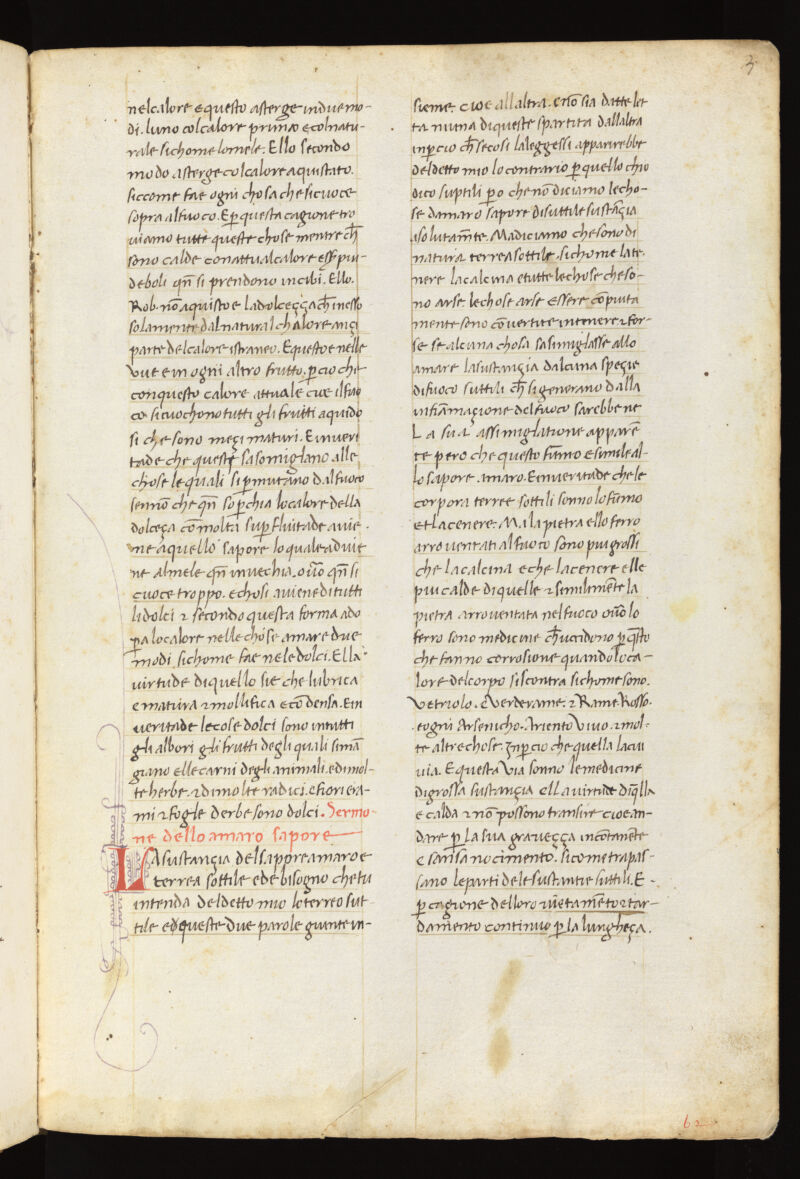 3
nel calore e questo asterge in due mo-
di. luno col calore primo e col natu-
rale sichome lo mele. Ello secondo
modo asterge col calore aquistato.
siccome fae ogni chosa che si cuoce
sopra al fuoco. E p questa cagione tro
viamo tutte queste chose mentre ch
sono calde con attual calore essr piu
deboli qn si prendono in cibi. Ello.
Rob. nō aquisto e la dolceçça ch inesso
solamente dal natural chalore ançi
parte del calore istraneo. E questo e nelle
uve e in ogni altro frutto. p cio che
con questo calore attuale cioe il fuo
co si cuochono tutti gli frutti a quido
si che sono meçi maturi. E in veri
tade che queste sasomiglano alle
chose le quali si pmutano dal fuoco
sennō che qn soperchia lo calore della
dolceça cō molta supfluitade avie.
ne a quello sapore lo quale advie
ne al mele qn invechia. ovo qn si
cuoce troppo. e chosi aviene di tutti
li dolci ⁊ secondo questa forma ado
pa lo calore nelle chose amare due
modi. sichome fae nele dolci. Ella
virtude di quello sie che lubrica
e matura ⁊ mollifica e cō densa. E in
veritade le cose dolci sono in tutti
gli albori gli frutti degli quali siman
giano elle carni degli animali. e di mol
te herbe. ⁊ di molte radici. e fiori e ra-
mi ⁊ fogle derbe sono dolci. Sermo-
ne dello amaro sapore
La sustançia del sapore amaro e
terrea sottile ed e bisogno che tu
intenda del detto mio lo terreo sut-
tile ed queste due parole giunte in-
sieme. cioe all altra. e nō sia da tte let
ta niuna di queste spartita dall altra
inpcio ch se cosi la leggessi apparirebbe
del detto mio lo contrario p quello chio
dico suptili po che nō diciamo le cho-
se damaro sapore di suttile sustāçia
asolutamte. Ma diciamo che sono di
natura terrea sottile. sichome la ce-
nere la calcina e tutte le chose che so-
no arse. le chose arse essere cō piuta
mente sono cō vertite in cenere ⁊ for-
se se alcuna chosa sasimiglasse allo
amare la sustançia dalcuna speçie
di fuoco suttili ch si generano dalla
infiāmaçione del fuoco sarebbene
La sua assimiglatione apparē
te pero che questo fūmo e simile al-
lo sapore. amaro. E in veritade che le
corpora terree sottili sonno lo fūmo
et la cenere. Ma la pietra ello ferro
arroventati al fuoco sono piu grossi
che la calcina e che la cenere elle
piu calde di quelle ⁊ similmēte la
pietra arroventata nel fuoco ovo lo
ferro sono medicine ch uccidono p qsto
che fanno corrosione quando lo ca-
lore del corpo si scontra sichome sono.
Vetriolo. e verderame. ⁊ Rame Rosso.
e ogni Arsenicho. Ariento Vivo. ⁊ mol-
te altre chose. Inpcio che quella lacui
via. E questa via sonno le medicine
di grossa sustançia ella virtude dqlla
e calda ⁊ nō possono transire cioe an-
dare p la sua graveçça incontanēte
e sansa nocimento. sicome trapas-
sano le parti dele sustantie suttili. E.
p cagione del loro vietamēto ⁊ tar-
damento continuo p la lungheça.
62